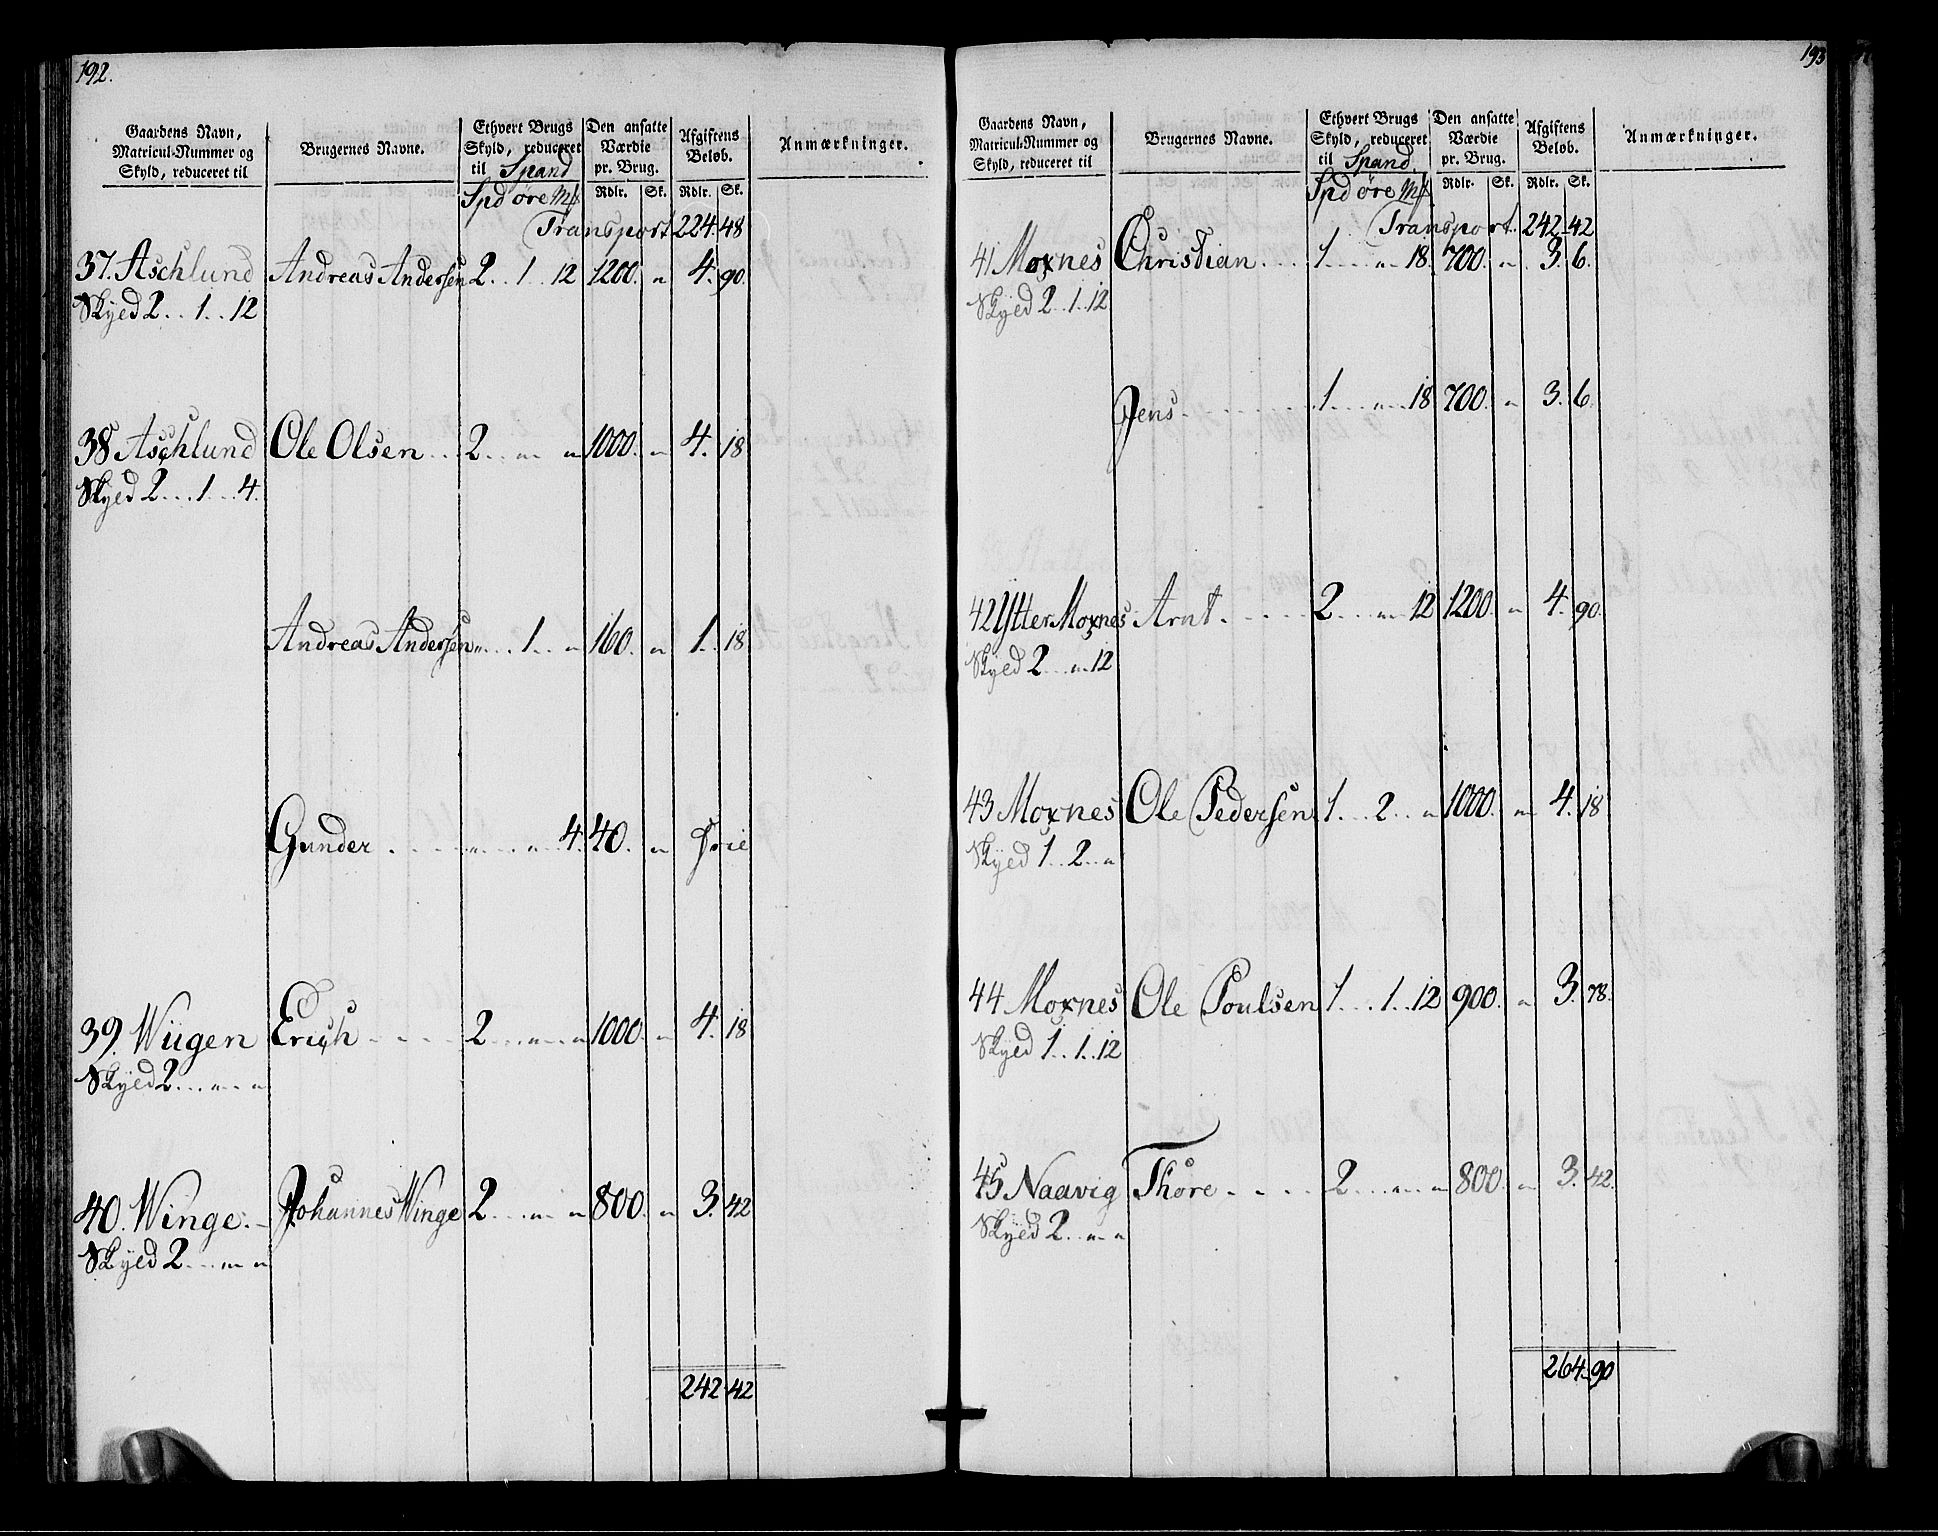 192.
Gaardens Navn,
Matricul-Nummer og
Skyld, reduceret til
Brugernes Navne.
Ethvert Brugs
Skyld, reduceret
til Spand
Spd øre Mk
Den ansatte
Værdie
pr. Brug.
Rdlr. Sk.
Afgiftens
Beløb.
Rdlr. Sk.
Anmærkninger.
Transport 224. 48
37. Aschlund Andreas Andersen 2 .. 1 .. 12 1200. " 4. 90.
Skyed 2 .. 1 .. 12
38 Aschlund Ole Olsen ... 2 ... " " 1000. " 4. 18
Skyed 2 ... 1 ... 4.
Andreas Andersen " ... 1 .. " 160. " 1. 18
Gunder ..... " .... " 4. 40. " Frie
39. Wiigen Erich .... 2 .... " .. " 1000. " 4. 18
Skyed 2 ... " .. "
40. Winge. Johannes Winge 2 ... " .. " 800. " 3. 42
Skyed 2 ... " .. "
242. 42
193
Gaardens Navn,
Matricul-Nummer og
Skyld, reduceret til
Brugernes Navne.
Ethvert Brugs
Skyld, reduceret
til Spand
Spd øre Mk
Den ansatte
Værdie
pr. Brug.
Rdlr. Sk.
Afgiftens
Beløb.
Rdlr. Sk.
Anmærkninger.
Transport. 242. 42
41 Moxnes Christian .... 1 .... " .. 18. 700. " 3. 6.
Skyed 2 .. 1 .. 12
Jens ........ 1 .... " .. 18 700. " 3. 6.
42 Ytter Moxnes Arnt ..... 2 .... " .. 12 1200. " 4. 90.
Skyed 2 ... " .. 12
43 Moxnes Ole Pedersen 1 ... 2 .. " 1000. " 4. 18
Skyed 1 .. 2 .. "
44 Moxnes Ole Poulsen 1 ... 1 .. 12 900. " 3. 78.
Skyed 1 .. 1 .. 12
45 Naavig Thore .... 2 .... " .. " 800. " 3. 42.
Skyed 2 .. " .. "
264. 90